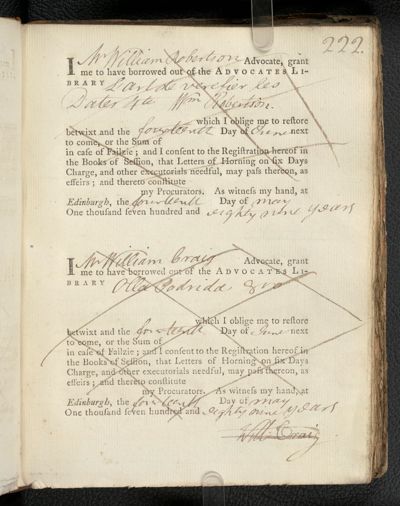 222.
I Mr William Robertson Advocate, grant
me to have borrowed out of the ADVOCATES LI-
BRARY L'art de verifier les
Dates 4to Wm Robertson.
which I oblige me to reſtore
betwixt and the fourteenth Day of June next
to come, or the Sum of
in caſe of Failzie; and I conſent to the Regiſtration hereof in
the Books of Seſſion, that Letters of Horning on ſix Days
Charge, and other executorials needful, may paſs thereon, as
effeirs; and thereto conſtitute
my Procurators. As witneſs my hand, at
Edinburgh, the fourteenth Day of May
One thouſand ſeven hundred and eighty nine years
I Mr William Craig Advocate, grant
me to have borrowed out of the ADVOCATES LI-
BRARY Olla Podrida 8vo
which I oblige me to reſtore
betwixt and the fourteenth Day of June next
to come, or the Sum of
in caſe of Failzie; and I conſent to the Regiſtration hereof in
the Books of Seſſion, that Letters of Horning on ſix Days
Charge, and other executorials needful, may paſs thereon, as
effeirs; and thereto conſtitute
my Procurators. As witneſs my hand, at
Edinburgh, the fourteenth Day of May
One thouſand ſeven hundred and eighty nine years
Will: Craig